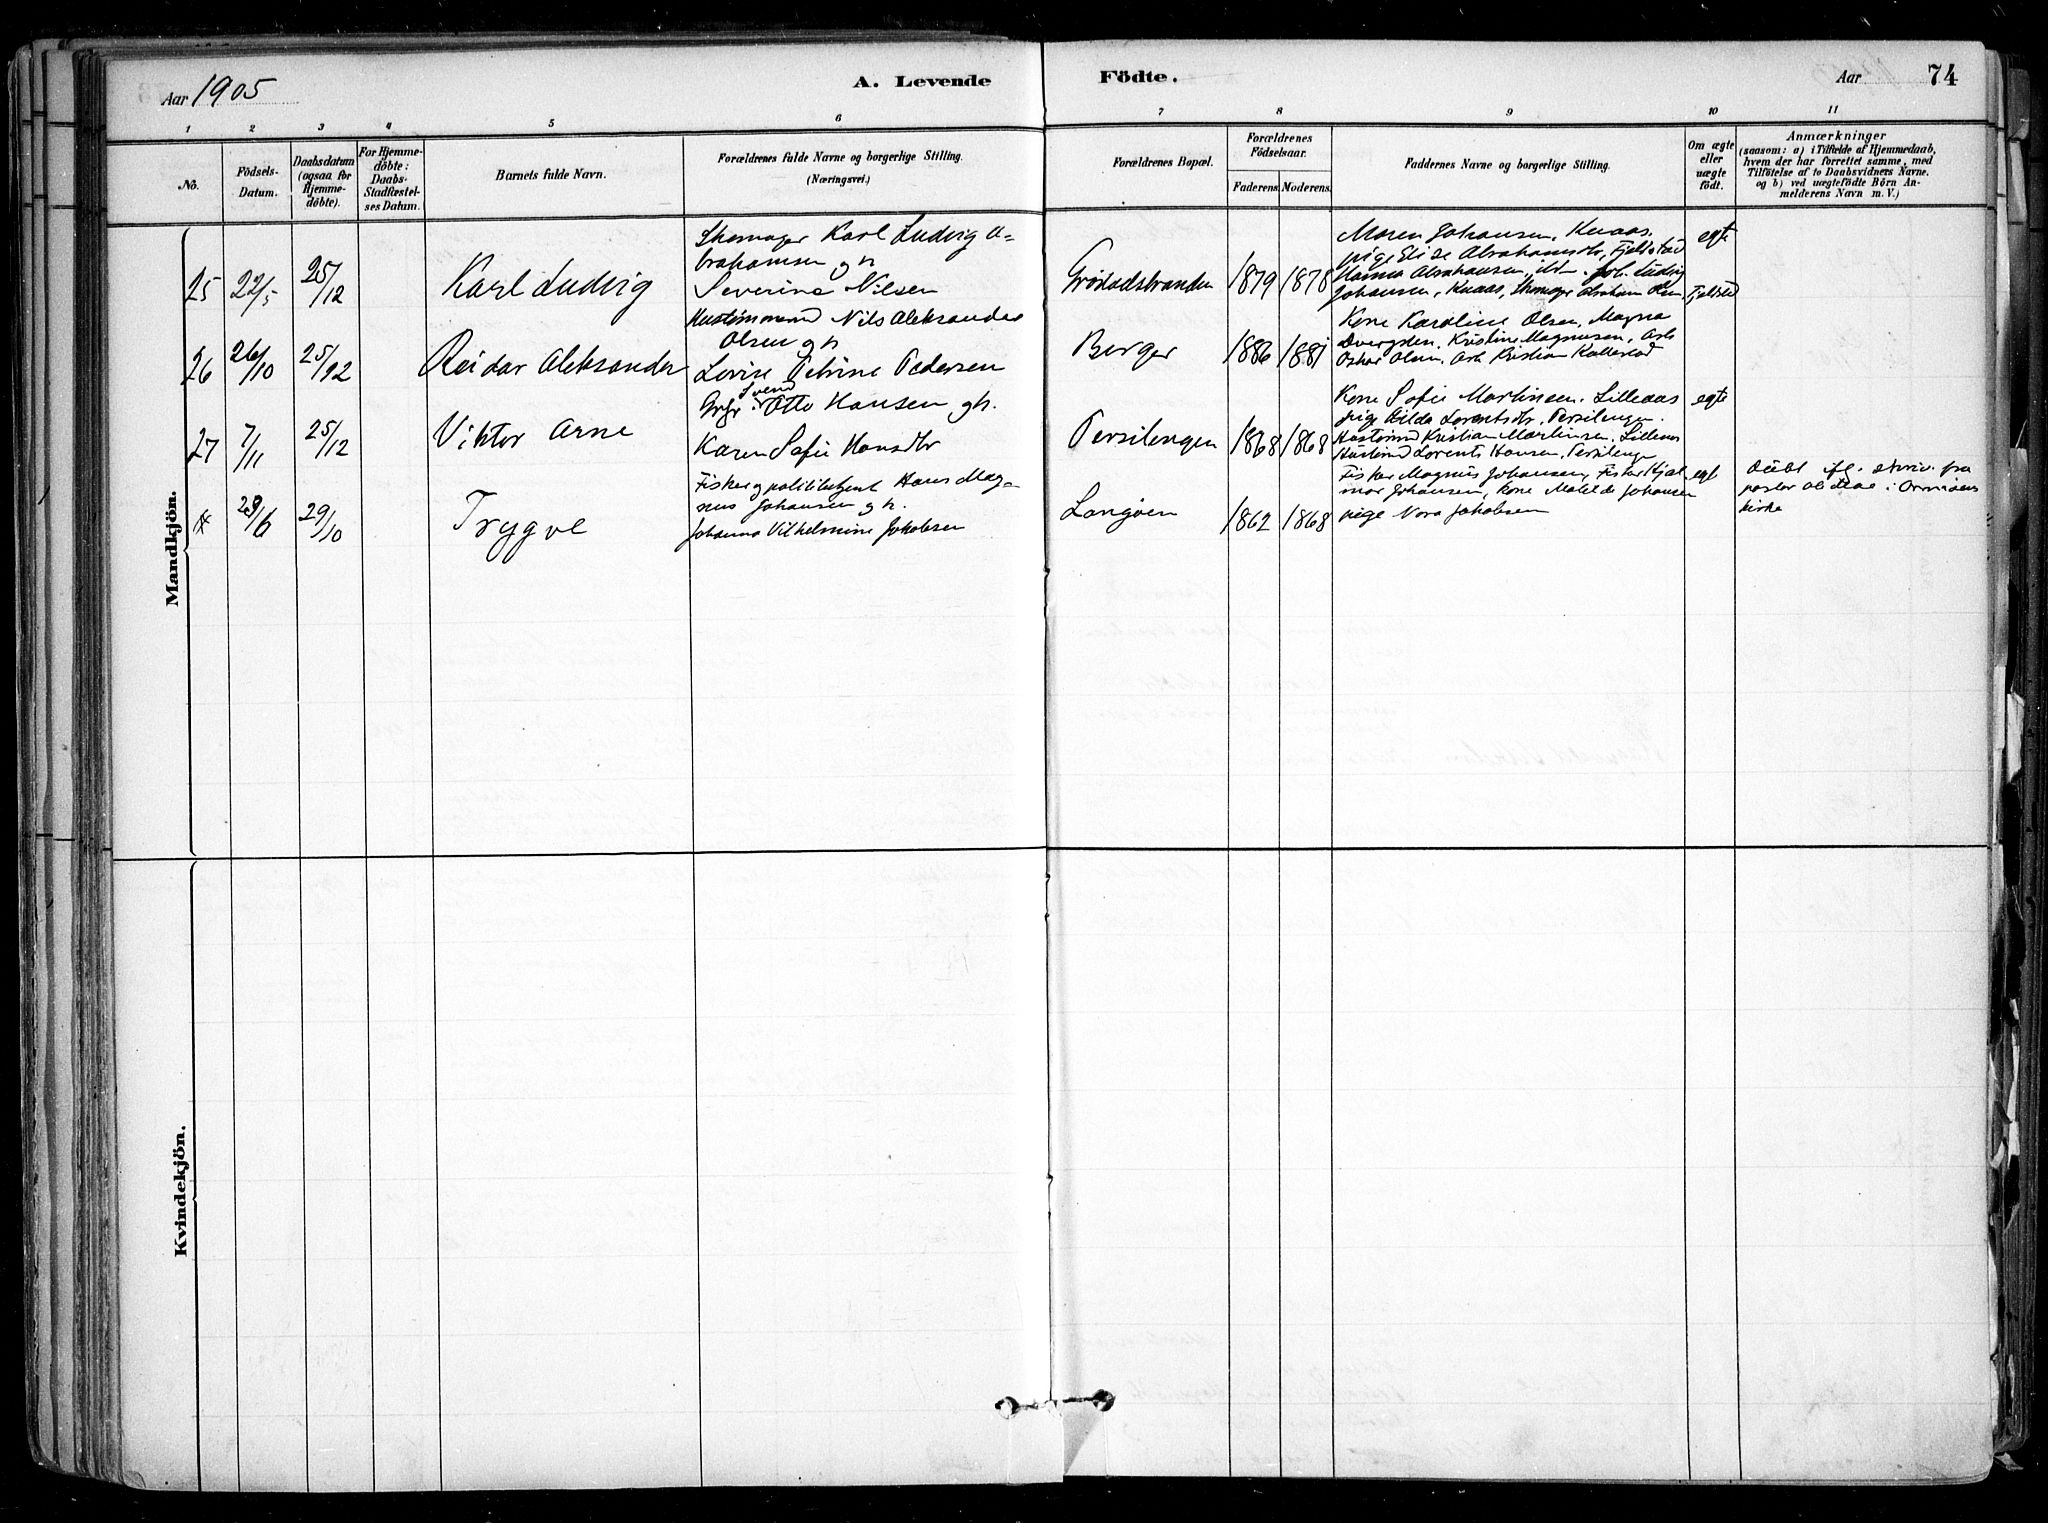 Aar 1905
A. Levende Födte.
Aar 74
1 2 3 4 5 6 7 8 9 10 11
No.
Födsels-Datum.
Daabsdatum (ogsaa for Hjemme-döbte).
For Hjemme-döbte: Daabs-Stadfæstel-ses Datum.
Barnets fulde Navn.
Forældrenes fulde Navne og borgerlige Stilling.
(Næringsvei.)
Forældrenes Bopæl.
Forældrenes Födselsaar.
Faderens. Moderens.
Faddernes Navne og borgerlige Stilling.
Om ægte eller uægte födt.
Anmærkninger
(saasom: a) i Tilfælde af Hjemmedaab,
hvem der har forrettet samme, med
Tilföielse af to Daabsvidners Navne.
og b) ved uægtefödte Börn An-
melderens Navn m. V.)
Mandkjön.
25 22/5 25/12 Karl Ludvig
Skomager Karl Ludvig A-
brahamsen gh
Severine Nilsen
1879 1878
Maren Johansen, Knaas,
pige Elise Abrahamsdtr, Fjeldstad
Hanna Abrahamsen, Ludvig
Johansen, Knaas, Skomager Abraham
egte
26 26/10 25/12 Reidar Aleksander
Nils Aleksander
Olsen gh
Lovise Petrine Pedersen
Berger 1886 1881
Kone Karoline Olsen, Magna
Kristine Magnussen, Arb
Oskar Olsen, Arb Kristian
27 7/11 25/12 Viktor Arne
Svend
Otto Hansen gh.
Karen Sofie Hansdtr
Persilengen 1868 1868
Kone Sofie Martinsen, Lilleaas
pige Hilda Lorentsdtr, Persilengen.
Kristian Martinsen, Lilleaas
Lorents Hansen, Persilengen
egte
28/6 29/10 Trygve
Fisker og politibetjent Hans Mag-
nus Johansen gh.
Johanna Vilhelmine Jakobsen
Langøen 1862 1868
Fisker Magnus Johansen, Fisker Hjal-
mar Johansen, Kone Matilde Johansen
pige Nora Jakobsen
egt
Døbt ifl. skriv. fra
pastor i Ormøens
kirke
Kvindekjön.